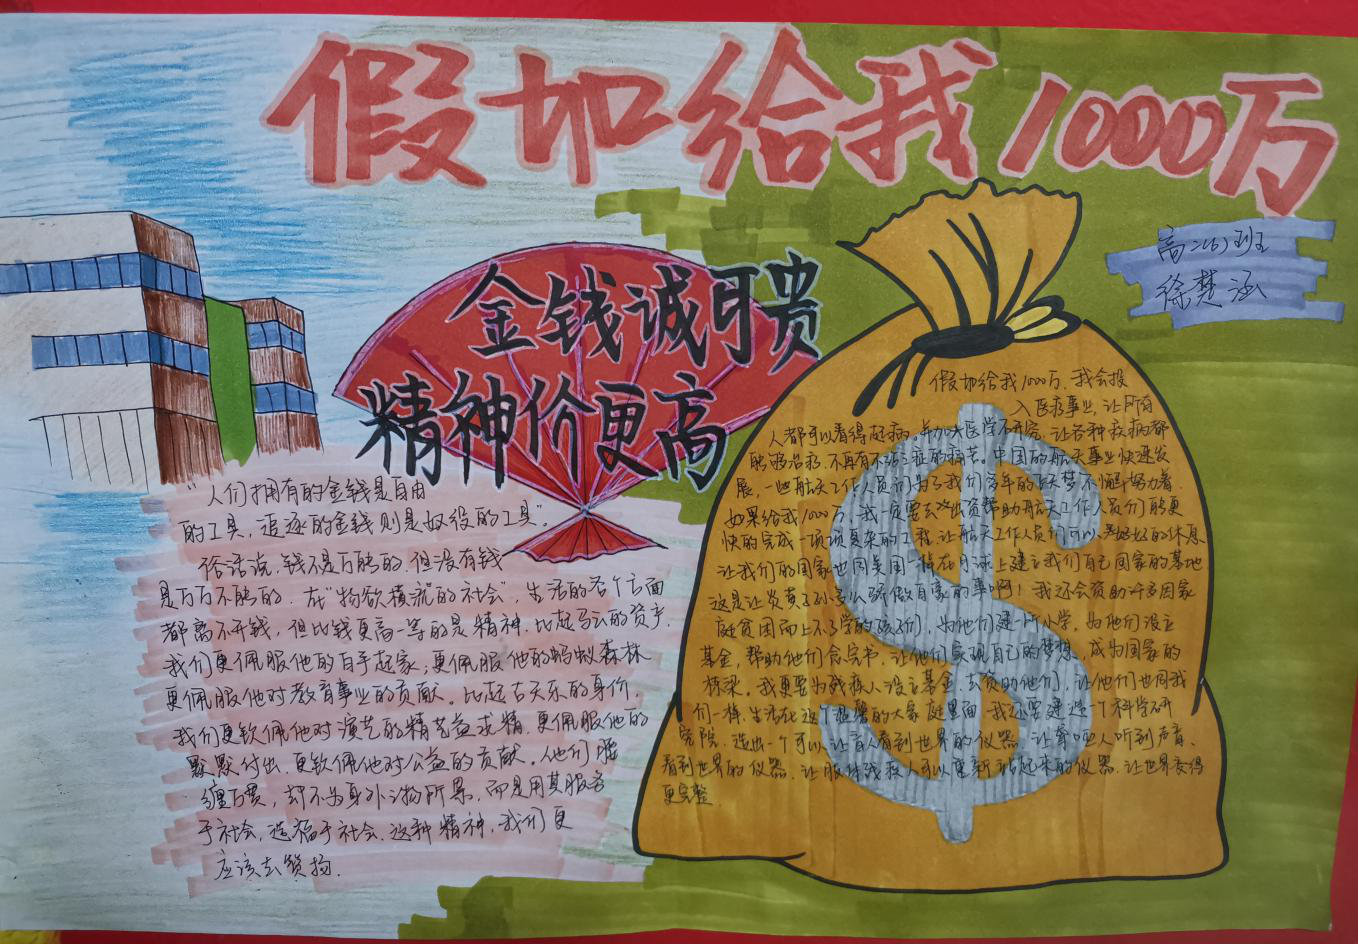 假如给我1000万
高二(6)班
徐楚涵
金钱诚可贵
精神价更高
“人们拥有的金钱是自由
的工具，追逐的金钱则是奴役的工具”。
俗话说，钱不是万能的，但没有钱
是万万不能的。在“物欲横流的社会”，生活的各个方面
都离不开钱，但比钱更高一等的是精神，比起马云的资产，
我们更佩服他的白手起家，更佩服他的蚂蚁森林
更佩服他对教育事业的贡献。比起古天乐的身价，
我们更钦佩他对演艺的精艺益求精，更佩服他的
默默付出，更钦佩他对公益的贡献，他们腰
缠万贯，却不为身外之物所累，而是用其服务
于社会，造福于社会，这种精神，我们更
应该去赞扬.
假如给我1000万，我会投
入医疗事业，让所有
人都可以看得起病。并加大医学不研究，让各种疾病都
能够治疗，不再有不治之症的痛苦。中国的航天事业快速发
展，一些航天工作人员们为了我们多年的航天梦不懈努力着
如果给我1000万，我一定要去出资帮助航天工作人员们能更
快的完成一项项复杂的工程，让航天工作人员们可以好好的休息
让我们的国家也同美国一样在月球上建立我们自己国家的基地
这是让炎黄子孙多么骄傲自豪的事啊！我还会资助许多因家
庭贫困而上不了学的孩子们，为他们建一所小学，为他们设立
基金，帮助他们念完书，让他们实现自己的梦想，成为国家的
栋梁。我更要为残疾人设立基金，去资助他们，让他们也同我
们一样，生活在这个温馨的大家庭里面，我还要建造一个科学研
究院，造出一个可以让盲人看到世界的仪器，让聋哑人听到声音、
看到世界的仪器，让肢体残疾人可以重新站起来的仪器，让世界变得
更完整.